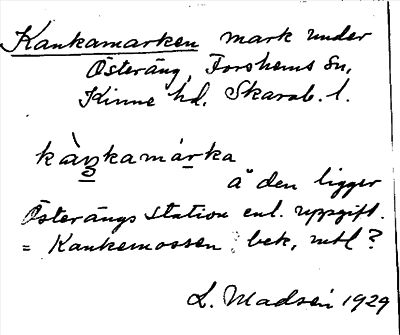 Kankamarken mark under
Österäng, Forshems sn,
Kinne hd. Skarab. l.
kàŋkamárka
å den ligger
Österängs station enl. uppgift.
= Kankemossen, bek, mtl?
L. Madsén 1929